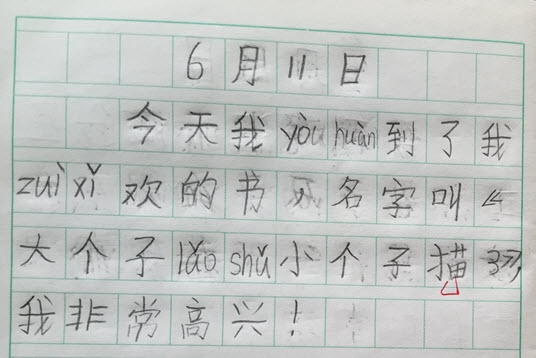 6月11日
今天我yòu huàn到了我
zuì xǐ欢的书,名字叫《
大个子lǎo shǔ小个子描》,
我非常高兴!